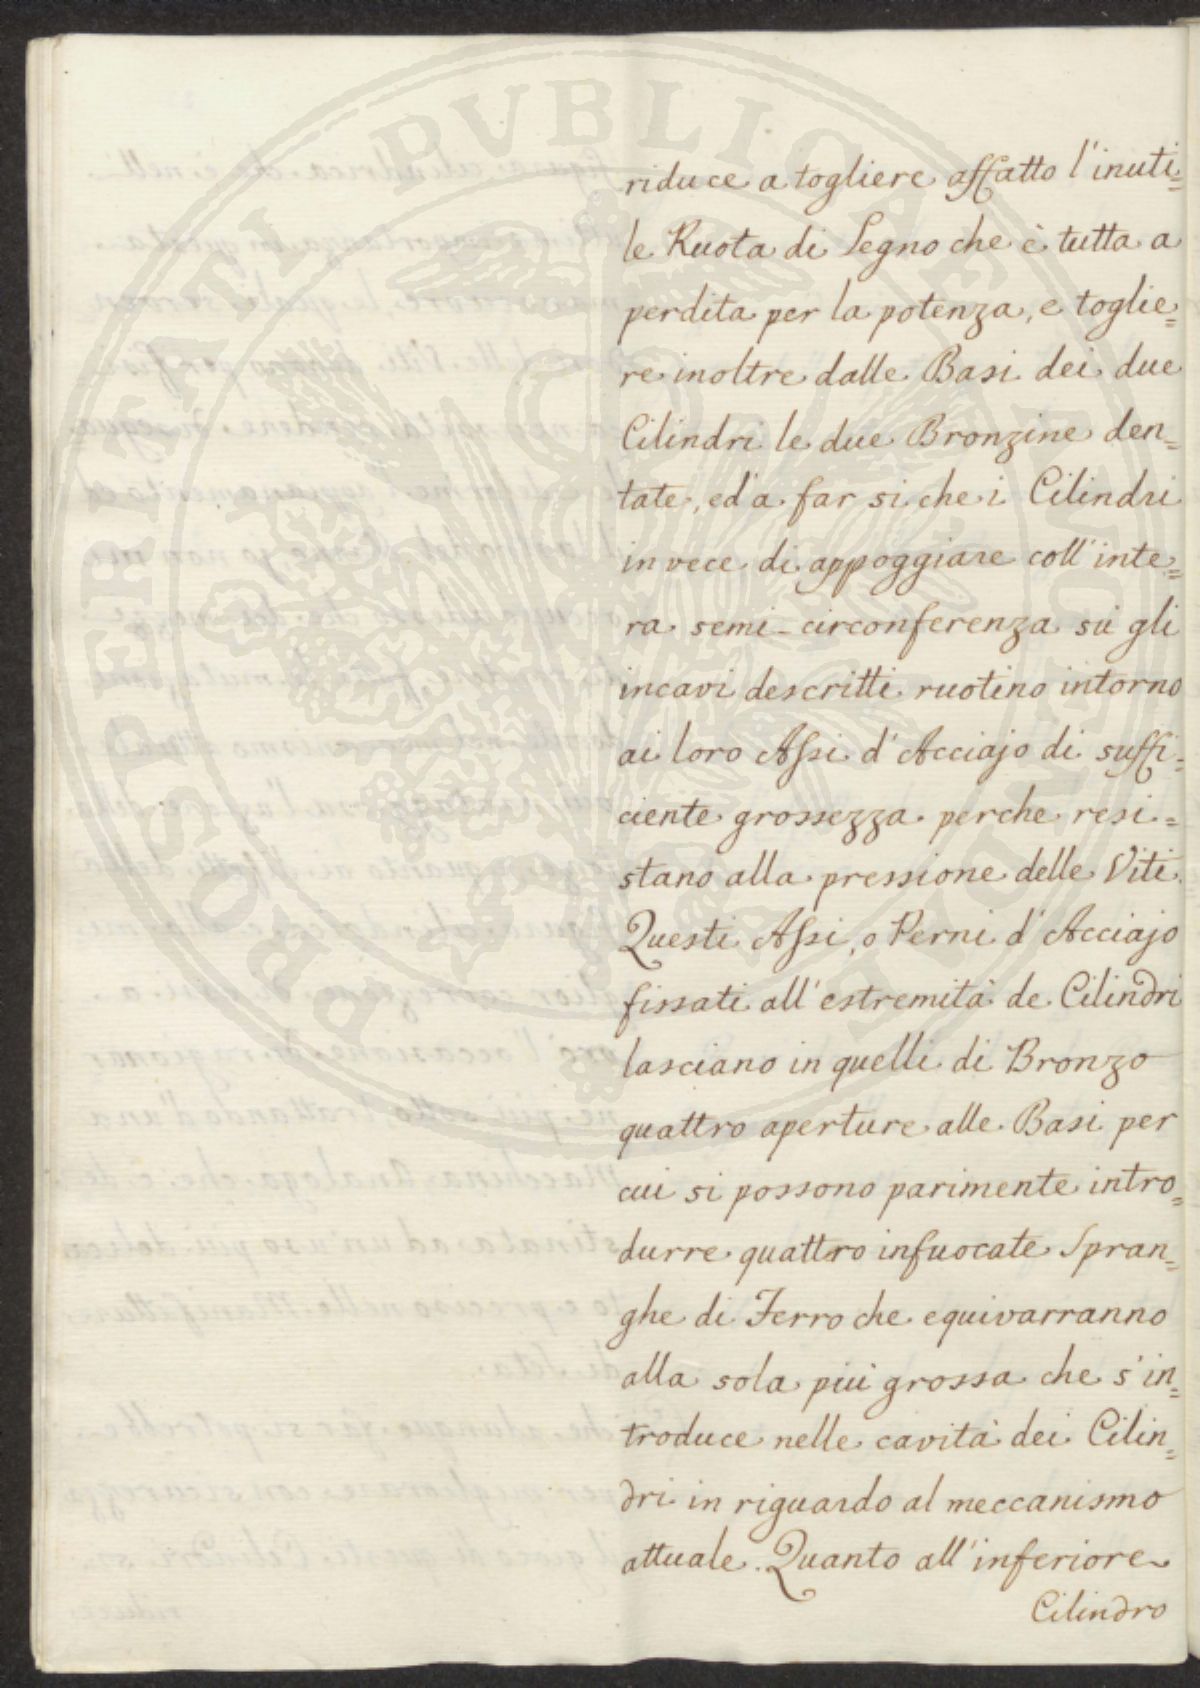 riduce a togliere affatto l'inuti=
le Ruota di Legno che è tutta a
perdita per la potenza, e toglie=
re inoltre dalle Basi dei due
Cilindri le due Bronzine den=
tate, ed'a far si che i Cilindri
in vece di appoggiare coll'inte=
ra semi-circonferenza sù gli
incavi descritti ruotino intorno
ai loro Assi d'Acciajo di suffi=
ciente grossezza perche resi=
stano alla pressione delle Viti.
Questi Assi, o Perni d'Acciajo
fissati all'estremità de Cilindri
lasciano in quelli di Bronzo
quattro aperture alle Basi per
cui si possono parimente intro=
durre quattro infuocate Spran=
ghe di Ferro che equivarranno
alla sola più grossa che s'in=
troduce nelle cavità dei Cilin=
dri in riguardo al meccanismo
attuale. Quanto all'inferiore
Cilindro
PROSPERITATI PVBLICAE AVGENDAE